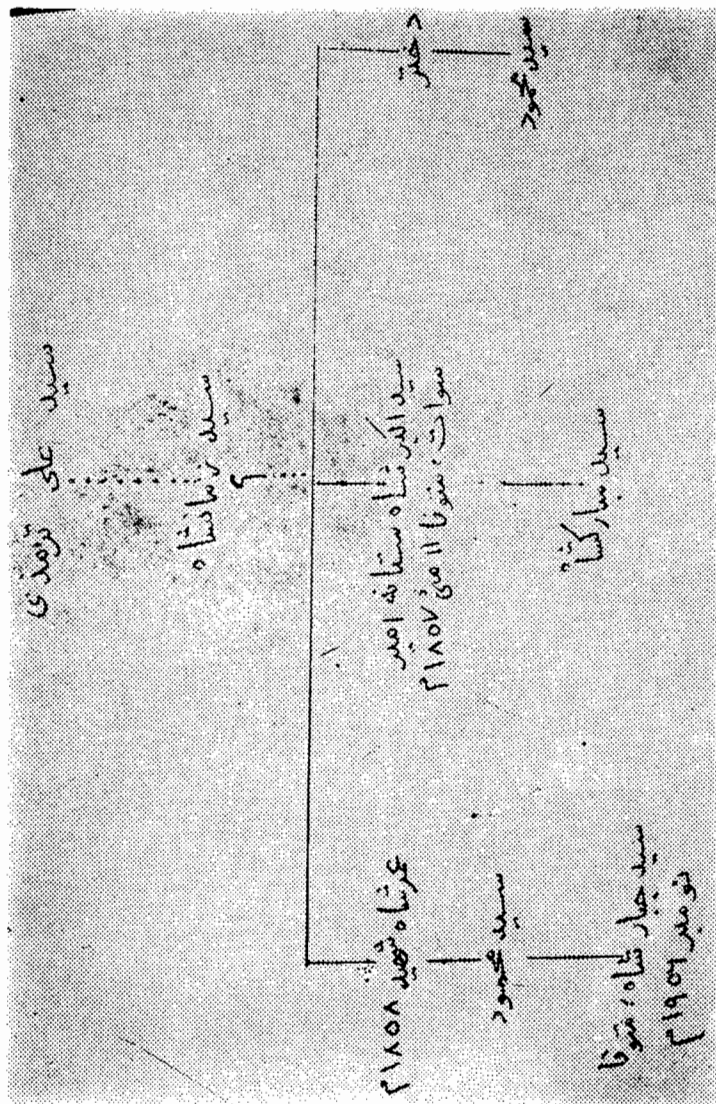 سید علی ترمذی
سید زمانشاه
؟
دختر
سید اکبر شاه ستانه امیر
سوات، متوفا ۱۱ مئ ۱۸۵۷م
عمر شاه شهید ۱۸۵۸م
سید محمود
سید مبارکشاه
سید محمود
سید جبار شاه، متوفا
نومبر ۱۹۵۶م